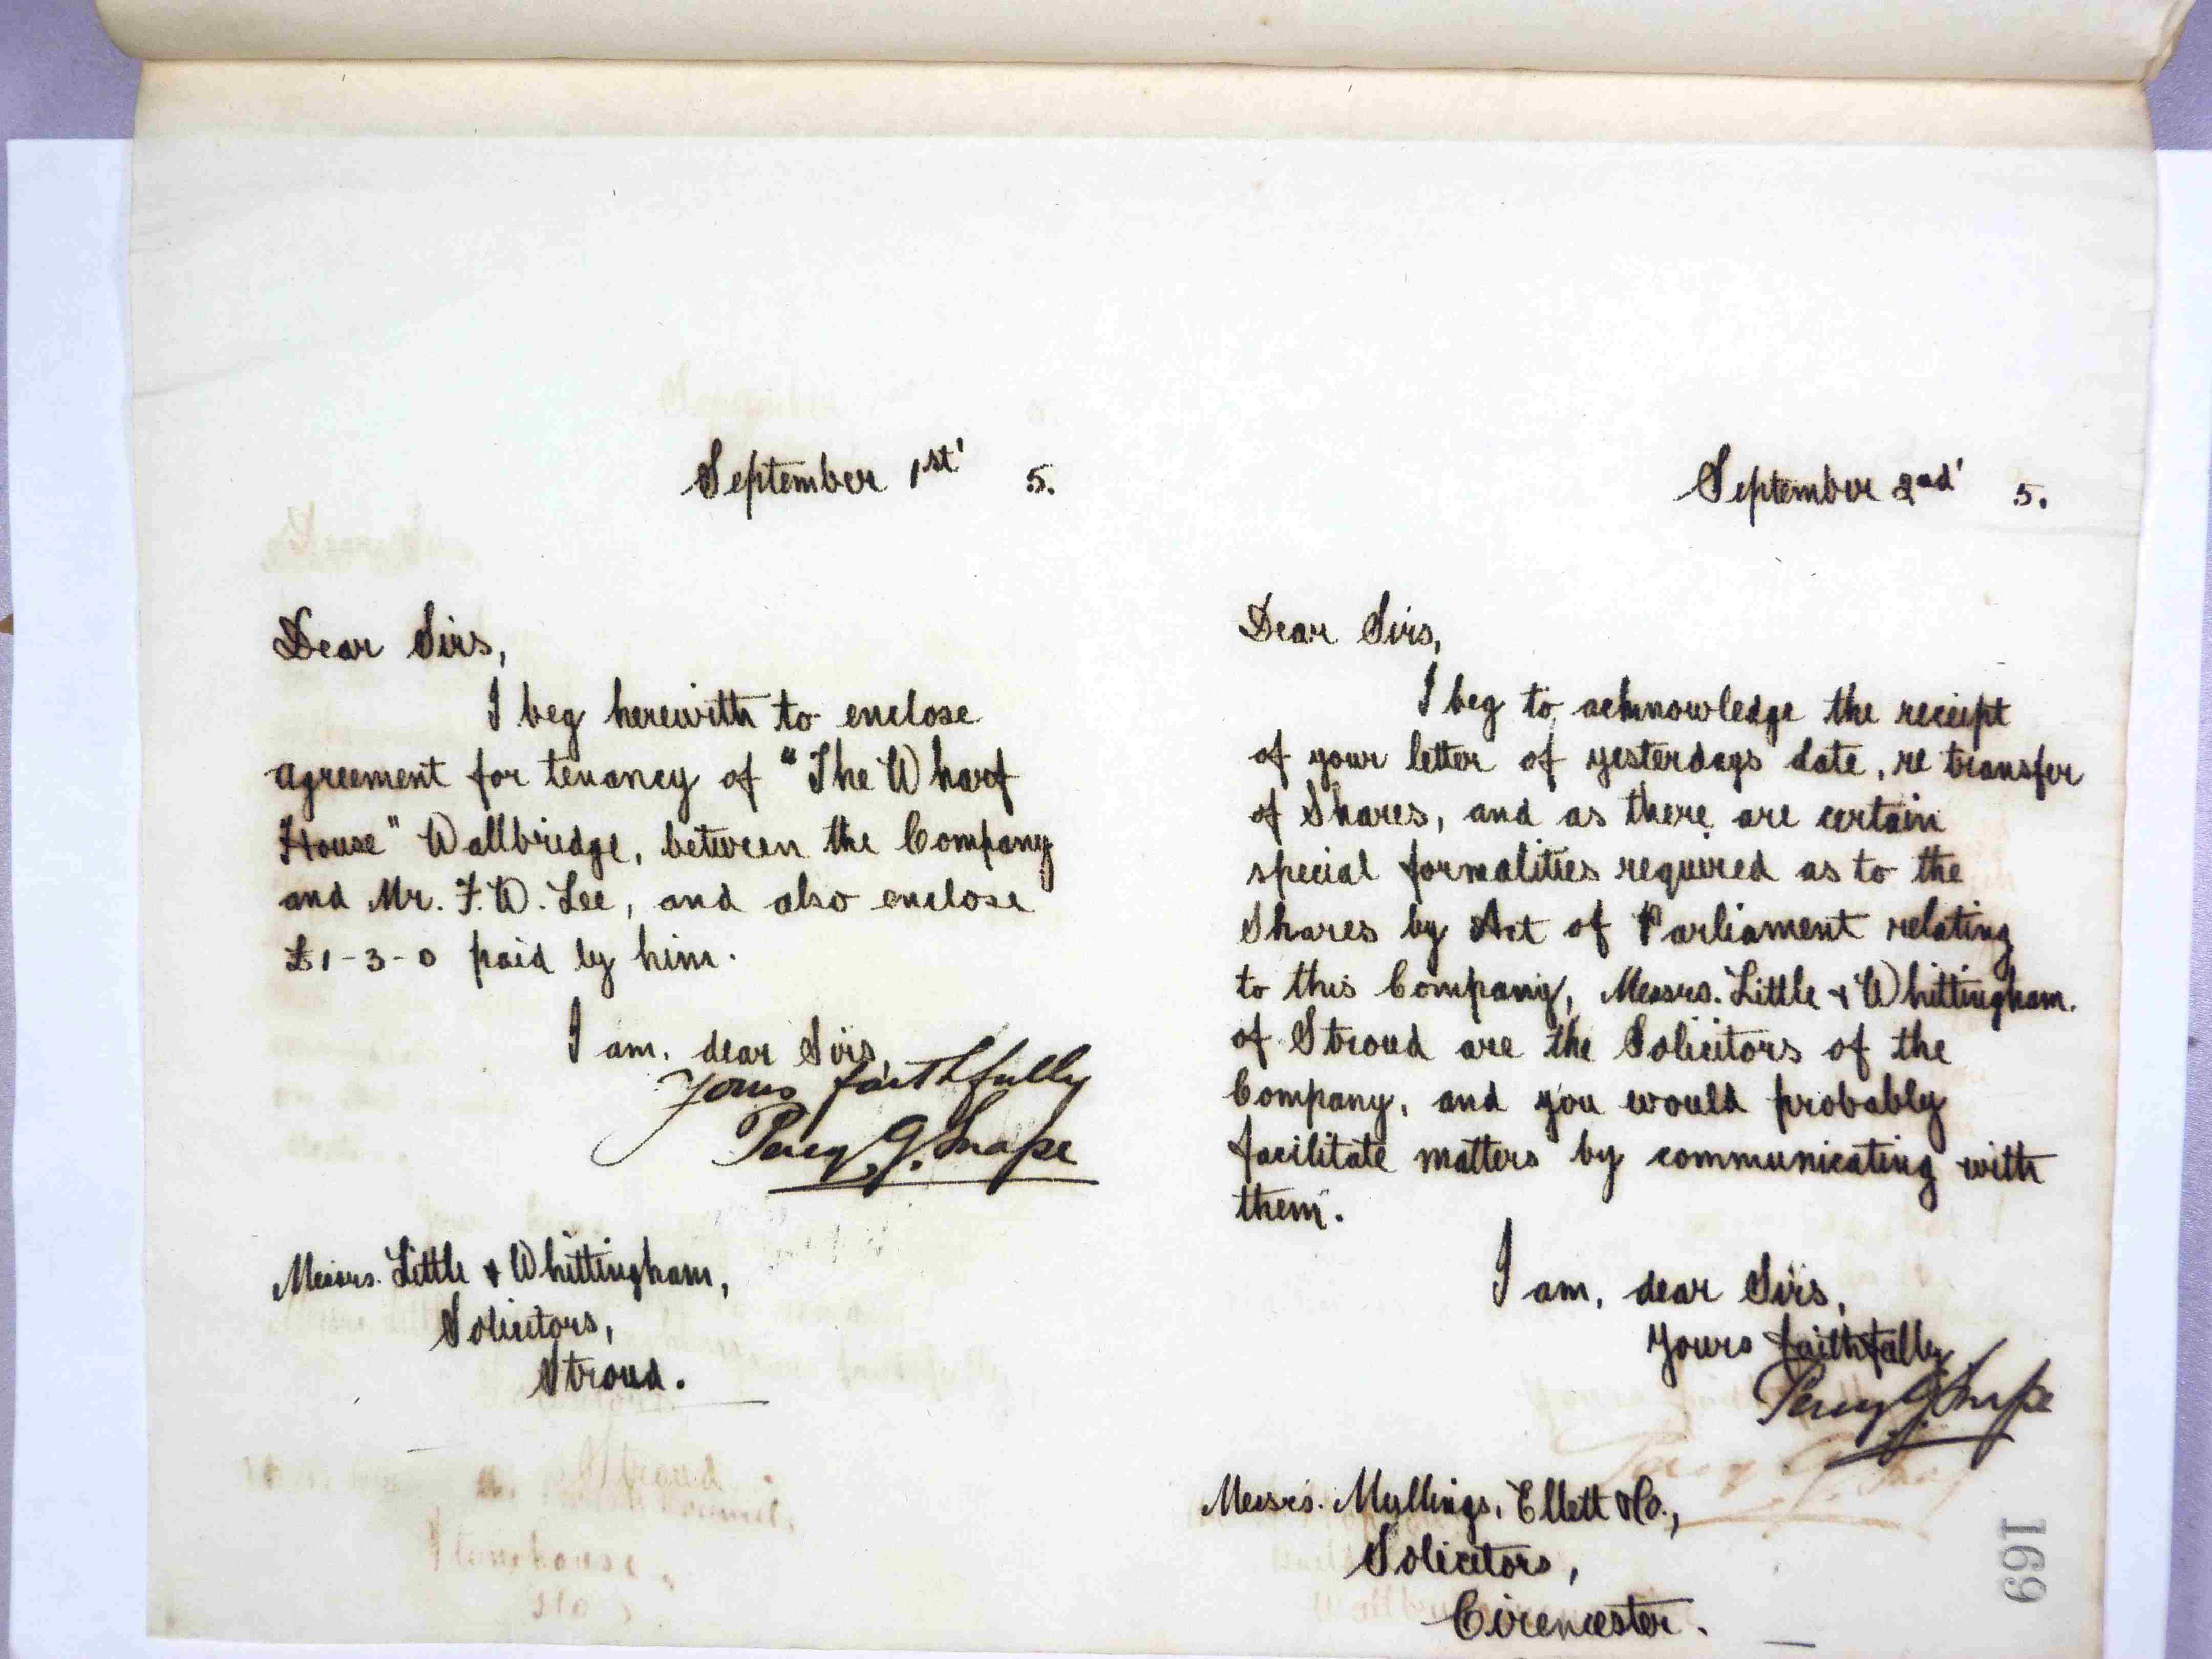 September 1st 5.
Dear Sirs,
I beg herewith to enclose
agreement for tenancy of "The Wharf
House" Wallbridge, between the Company
and Mr. F. W. Lee, and also enclose
£1-3-0 paid by him.
I am, dear Sirs,
Yours faithfully
Percy G. Snape
Messrs. Little & Whittingham,
Solicitors,
Stroud.
September 2nd 5.
Dear Sirs,
I beg to acknowledge the receipt
of your letter of yesterdays date, re transfer
of Shares, and as there are certain
special formalities required as to the
Shares by Act of Parliament relating
to this Company, Messrs. Little & Whittingham.
of Stroud are the Solicitors of the
Company, and you would probably
facilitate matters by communicating with
them.
I am, dear Sirs,
Yours faithfully
Percy G. Snape
Messrs. Mullings, Ellett & Co.,
Solicitors,
Cirencester.
169